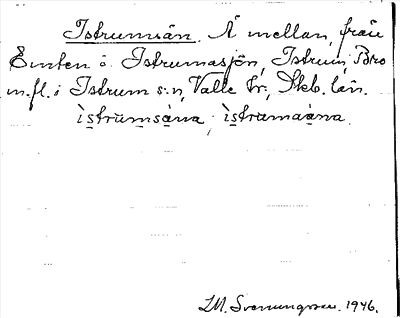 Istrumsån. Å mellan, från
Emten o. Istrumasjön, Istrum, Bro
m.fl. i Istrum s:n, Valle hr., Skb. län.
ìstrùmsåna, ìstrumaåna.
LM. Svenungsson. 1946.